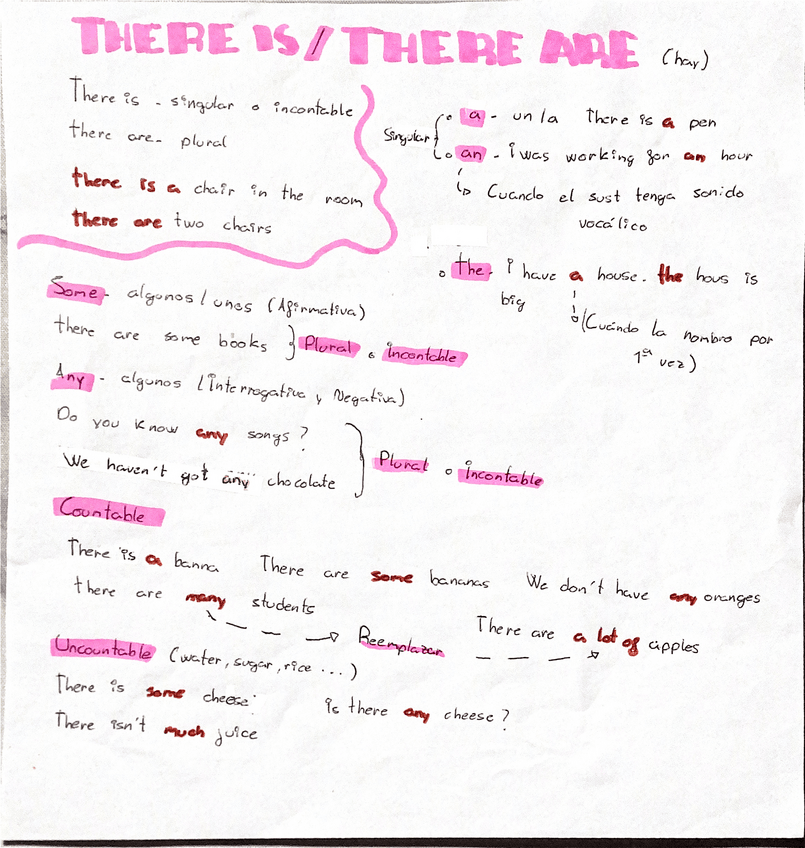 THERE IS / THERE ARE (hay)
There is - singular o incontable
there are - plural
there is a chair in the room
there are two chairs
Singular
a - un/a There is a pen
an - i was working for an hour
Cuando el sust tenga sonido
vocálico
the - I have a house. the hous is
big
(Cuándo la nombro por
1ª vez)
Some - algunos / unos (Afirmativa)
there are some books
Plural o incontable
Any - algunos (interrogativa y Negativa)
Do you know any songs?
We haven't got any chocolate
Plural o incontable
Countable
There is a banna There are some bananas We don't have any oranges
there are many students
Reemplazar
There are a lot of apples
Uncountable (water, sugar, rice ...)
There is some cheese is there any cheese?
There isn't much juice